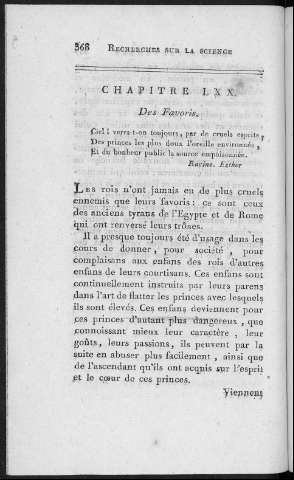 368 RECHERCHES SUR LA SCIENCE
CHAPITRE LXX.
Des Favoris.
Ciel ! verra-t-on toujours, par de cruels esprits,
Des princes les plus doux l'oreille environnée,
Et du bonheur public la source empoisonnée.
Racine. Esther
LES rois n'ont jamais eu de plus cruels
ennemis que leurs favoris : ce sont ceux
des anciens tyrans de l'Egypte et de Rome
qui ont renversé leurs trônes.
Il a presque toujours été d'usage dans les
cours de donner, pour société, pour
complaisans aux enfans des rois d'autres
enfans de leurs courtisans. Ces enfans sont
continuellement instruits par leurs parens
dans l'art de flatter les princes avec lesquels
ils sont élevés. Ces enfans deviennent pour
ces princes d'autant plus dangereux, que
connoissant mieux leur caractère, leur
goûts, leurs passions, ils peuvent par la
suite en abuser plus facilement, ainsi que
de l'ascendant qu'ils ont acquis sur l'esprit
et le cœur de ces princes.
Viennent